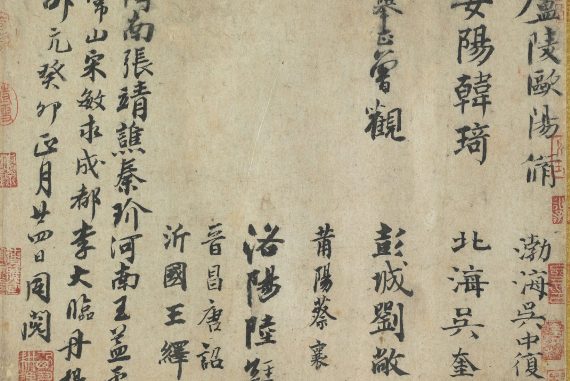 廬陵歐陽脩　渤海吳中復
安陽韓琦　北海吳奎
舉正曾觀　彭城劉敞
莆陽蔡襄
洛陽陸經
晉昌唐詔
沂國王繹
河南張靖譙秦玠河南王益柔
常山宋敏求成都李大臨丹楊
邵亢癸卯正月廿四日同閱